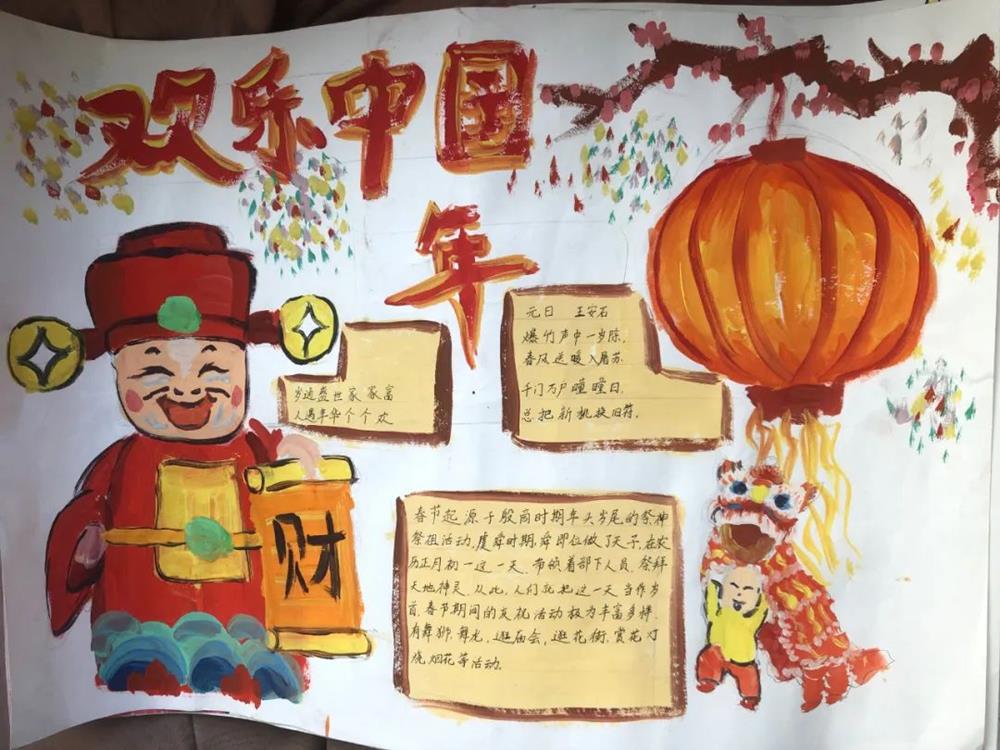 欢乐中国
年
岁逢盛世家家富
人遇年华个个欢
元日 王安石
爆竹声中一岁除,
春风送暖入屠苏.
千门万户曈曈日.
总把新桃换旧符.
财
春节起源于殷商时期年头岁尾的祭神
祭祖活动,虞舜时期,舜即位做了天子,在农
历正月初一这一天.带领着部下人员.祭拜
天地神灵.从此,人们就把这一天当作岁
首.春节期间的庆祝活动极为丰富多样.
有舞狮.舞龙,逛庙会,逛花街,赏花灯
烧烟花等活动.